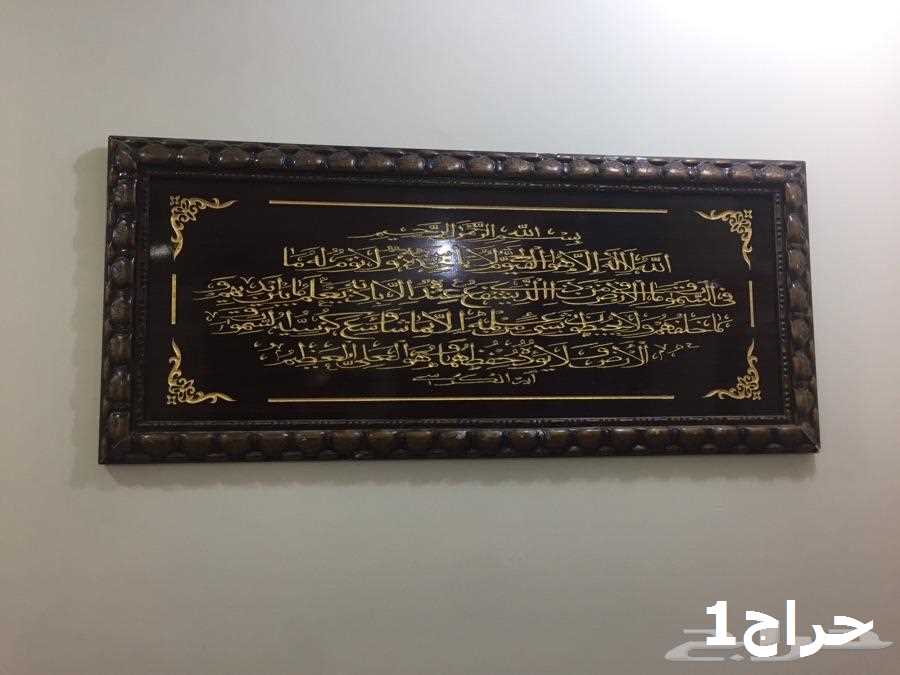 بسم الله الرحمن الرحيم
الله لا اله الا هو الحي القيوم لا تأخذه سنة ولا نوم له ما
في السموات وما في الارض من ذا الذي يشفع عنده الا باذنه يعلم ما بين ايديهم و
ما خلفهم ولا يحيطون بشيء من علمه الا بما شاء وسع كرسيه السموات و
الارض ولا يؤده حفظهما وهو العلي العظيم
آية الكرسي
حراج1
حراج